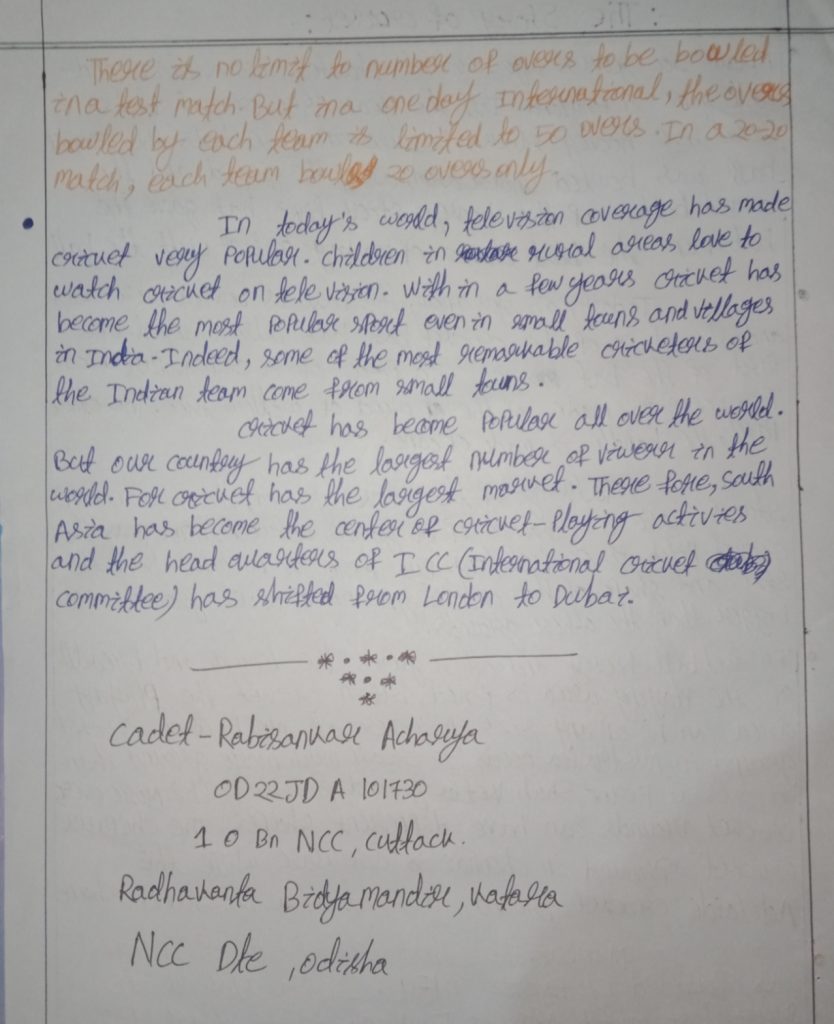 There is no limit to number of overs to be bowled
in a test match. But in a one day International, the overs
bowled by each team is limited to 50 overs. In a 20-20
match, each team bowls 20 overs only.
In today's world, television coverage has made
cricket very Popular. children in rural areas love to
watch cricket on tele vision. With in a few years cricket has
become the most Popular sport even in small towns and villages
in India. Indeed, some of the most remarkable cricketers of
the Indian team come from small towns.
cricket has become Popular all over the world.
But our country has the largest number of viwerr in the
world. For cricket has the largest market. There fore, South
Asia has become the center of cricket-Playing activies
and the head quarters of ICC (International cricket
committee) has shifted from London to Dubai.
Cadet-Rabisankar Acharya
OD22JDA101730
10 Bn NCC, cuttack.
Radhakanta Bidyamandir, katara
NCC Dte, odisha